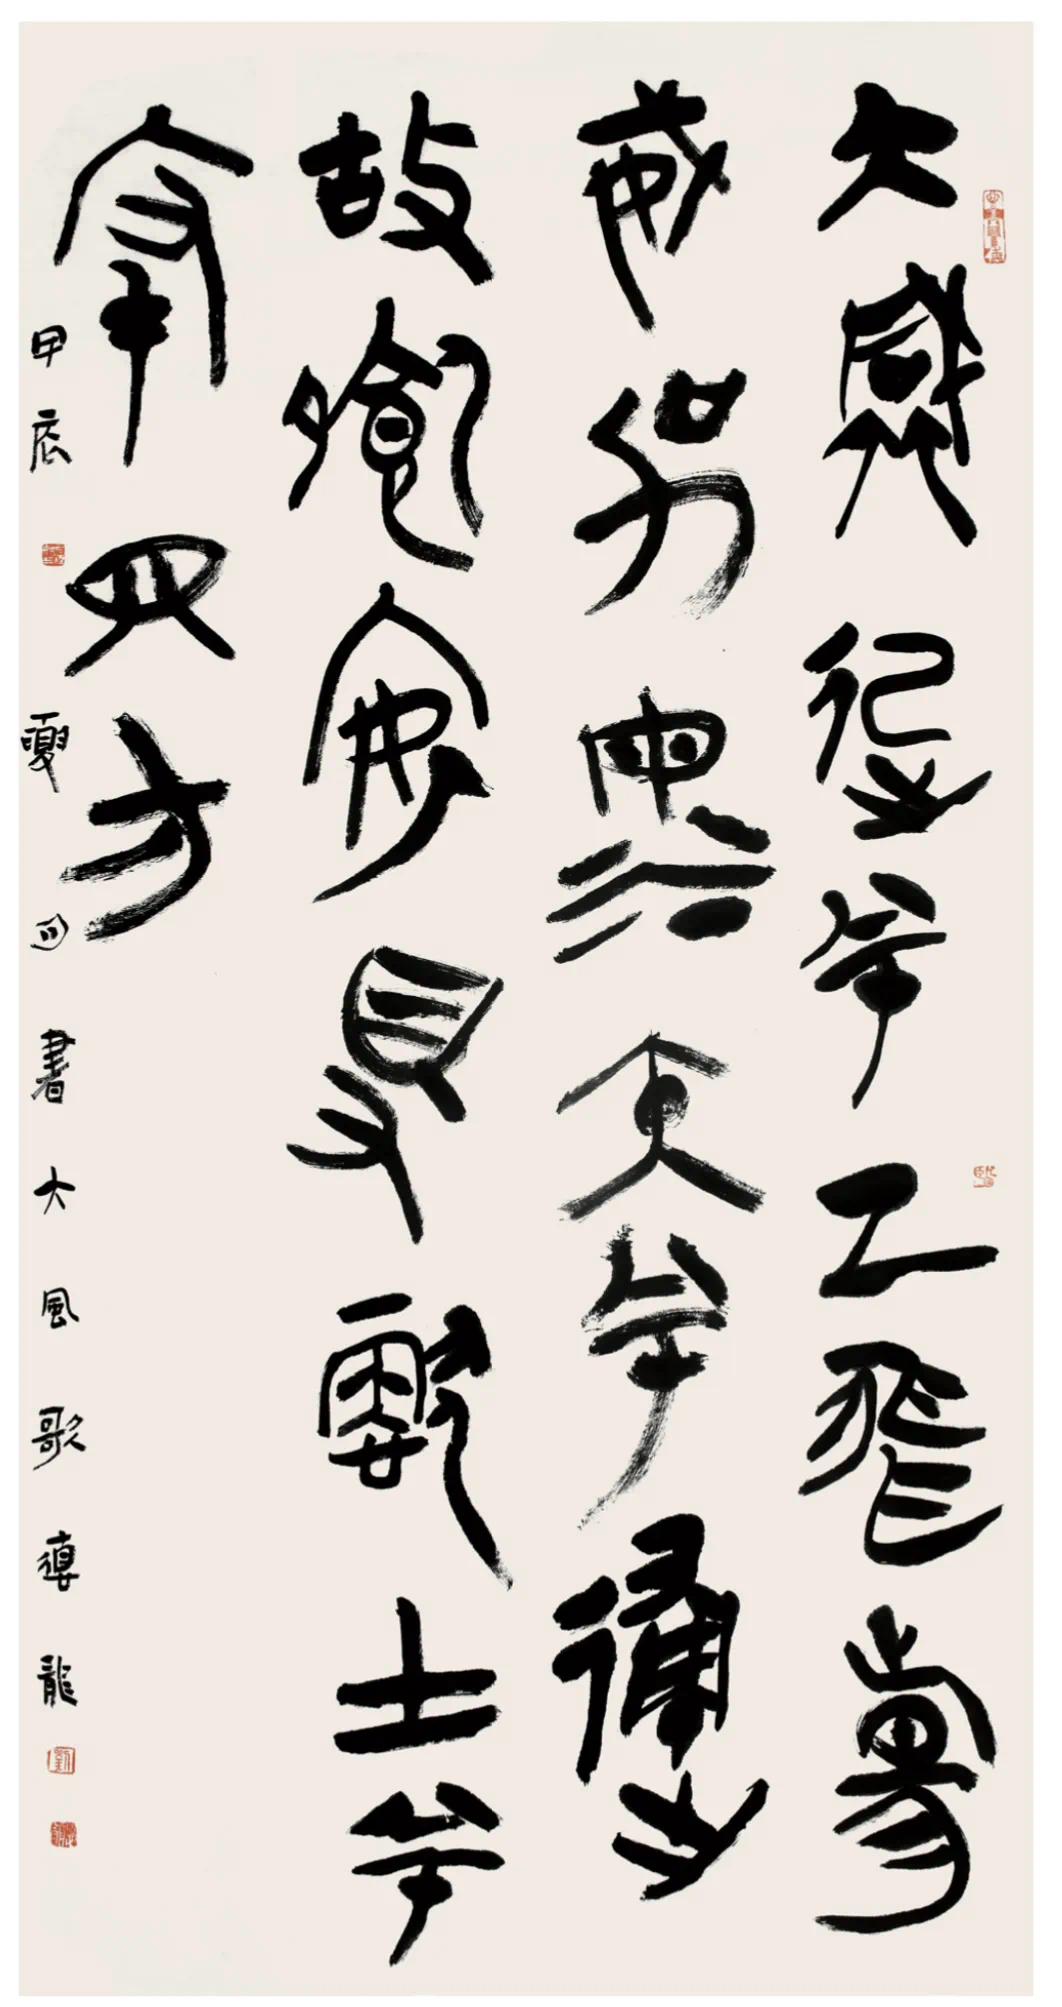 大風起兮云飛揚
威加海内兮歸
故鄉安得猛士兮
守四方
甲辰夏月書大風歌德龍